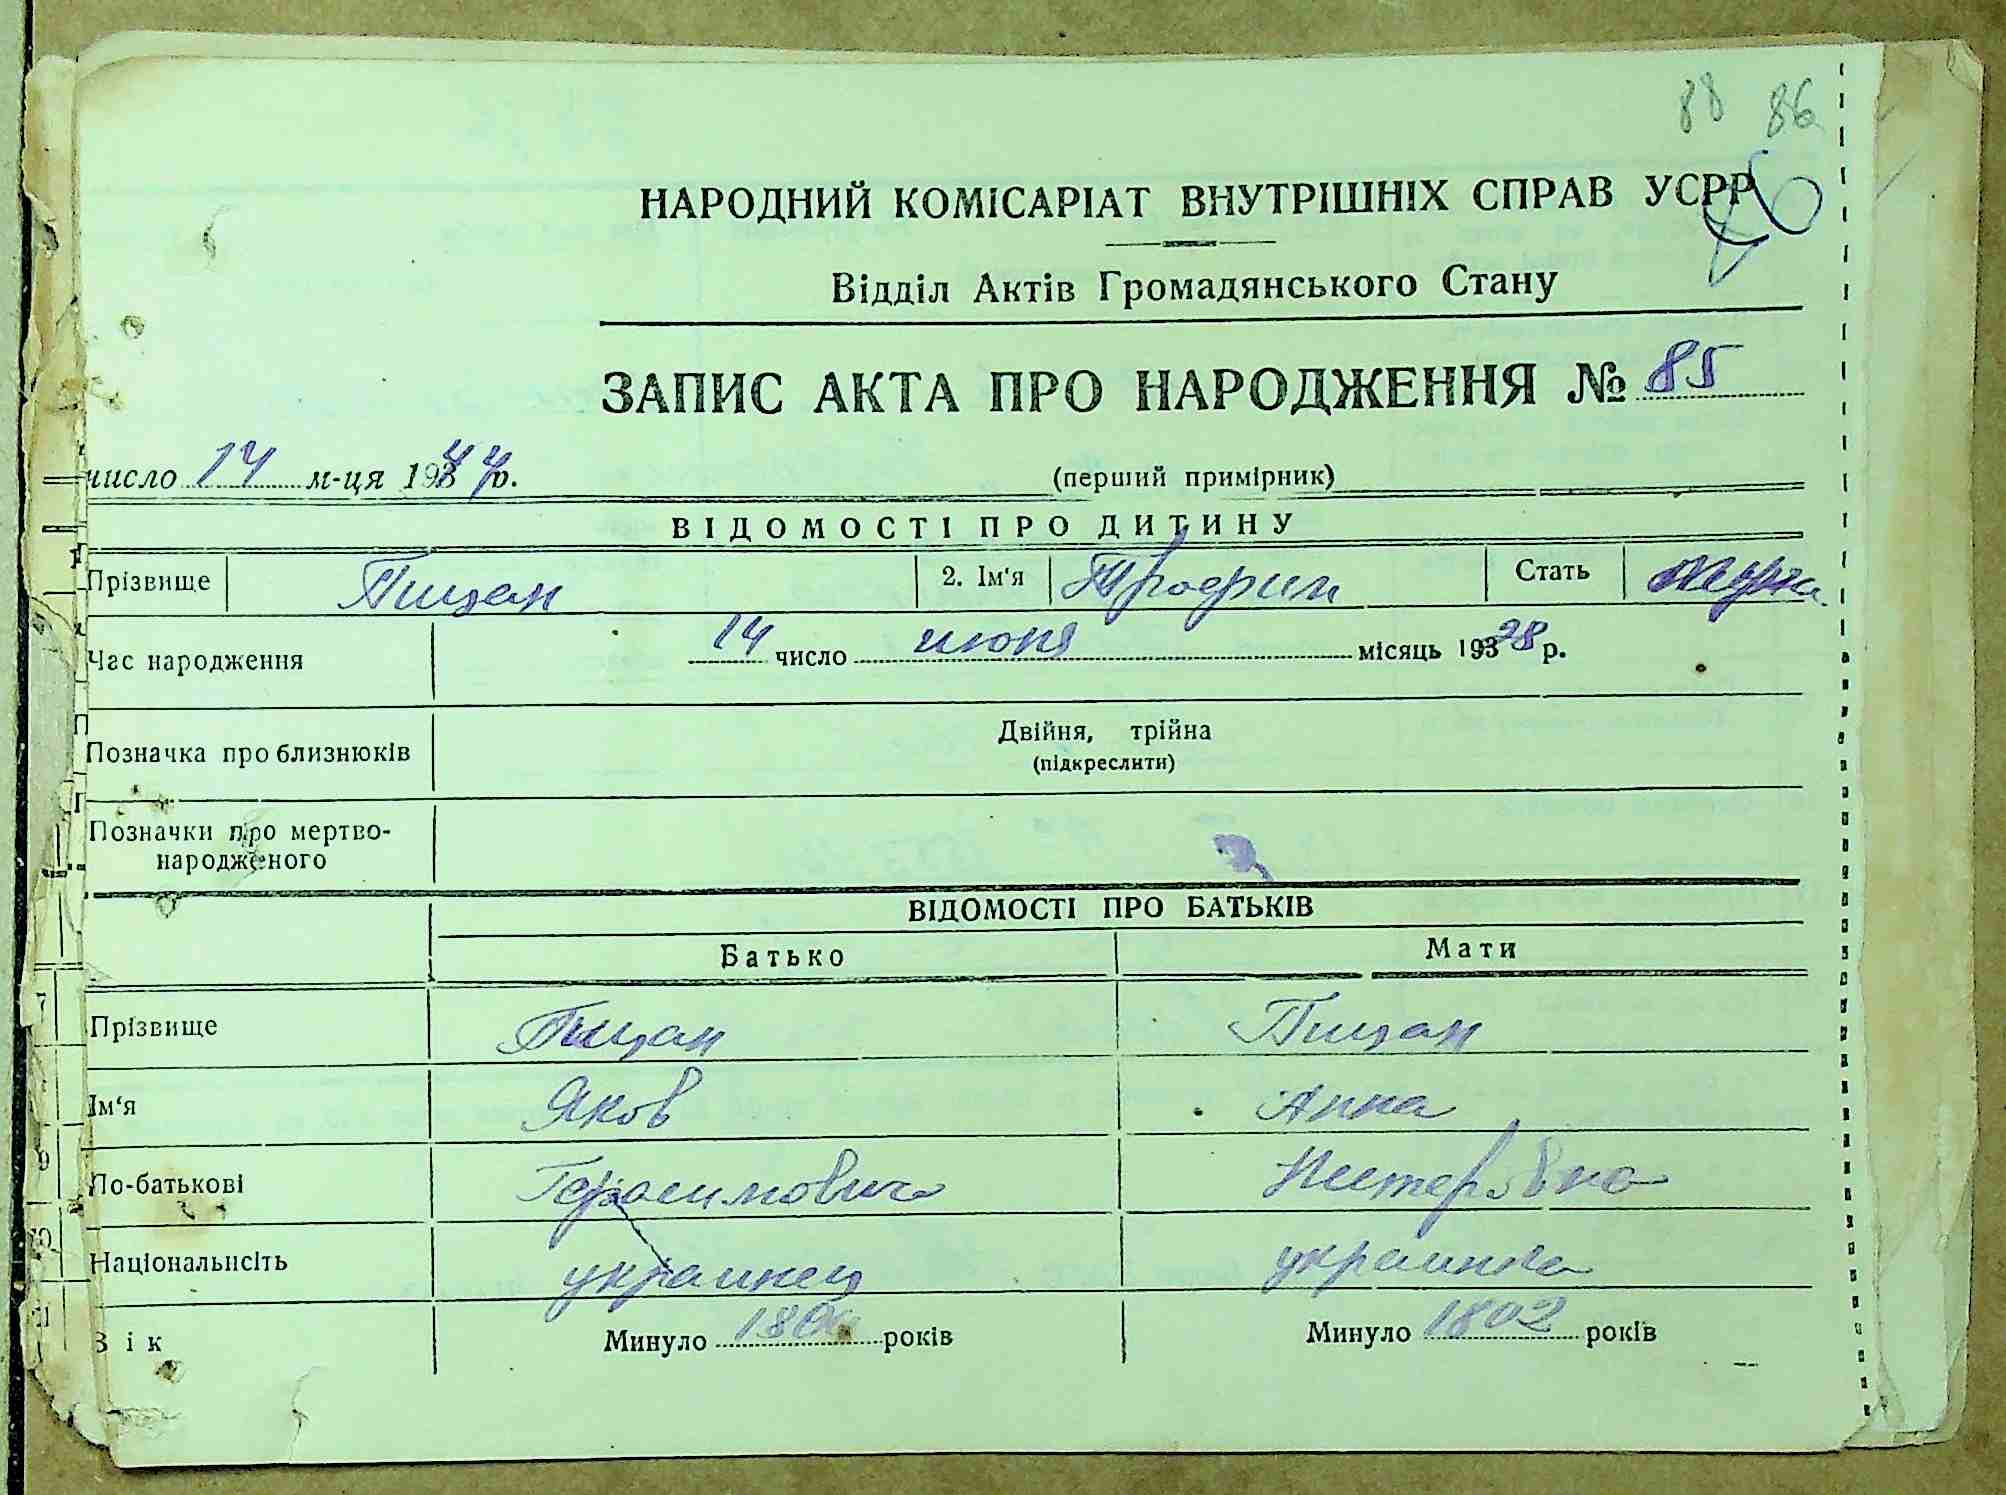 88 86
НАРОДНИЙ КОМІСАРІАТ ВНУТРІШНІХ СПРАВ УСРР
Відділ Актів Громадянського Стану
ЗАПИС АКТА ПРО НАРОДЖЕННЯ № 85
число 14 м-ця 1944 р.
(перший примірник)
ВІДОМОСТІ ПРО ДИТИНУ
Прізвище Пищан 2. Ім'я Трофим Стать мужс.
Час народження 14 число июня місяць 1928 р.
Позначка про близнюків Двійня, трійна
(підкреслити)
Позначки про мертво-
народженого
ВІДОМОСТІ ПРО БАТЬКІВ
Батько Мати
Прізвище Пищан Пищан
Ім'я Яков Анна
По-батькові Герасимович Нестеровна
Національність украинец украинка
Вік Минуло років Минуло 1892 років
7
9
10
11